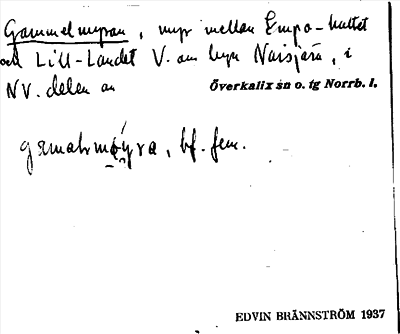 Gammelmyran, myr mellan Empo-luttet
och Lill-Landet V. om byn Naisjärv, i
NV. delen av Överkalix sn o. tg Norrb. l.
gamalmýra, bf. fem.
EDVIN BRÄNNSTRÖM 1937